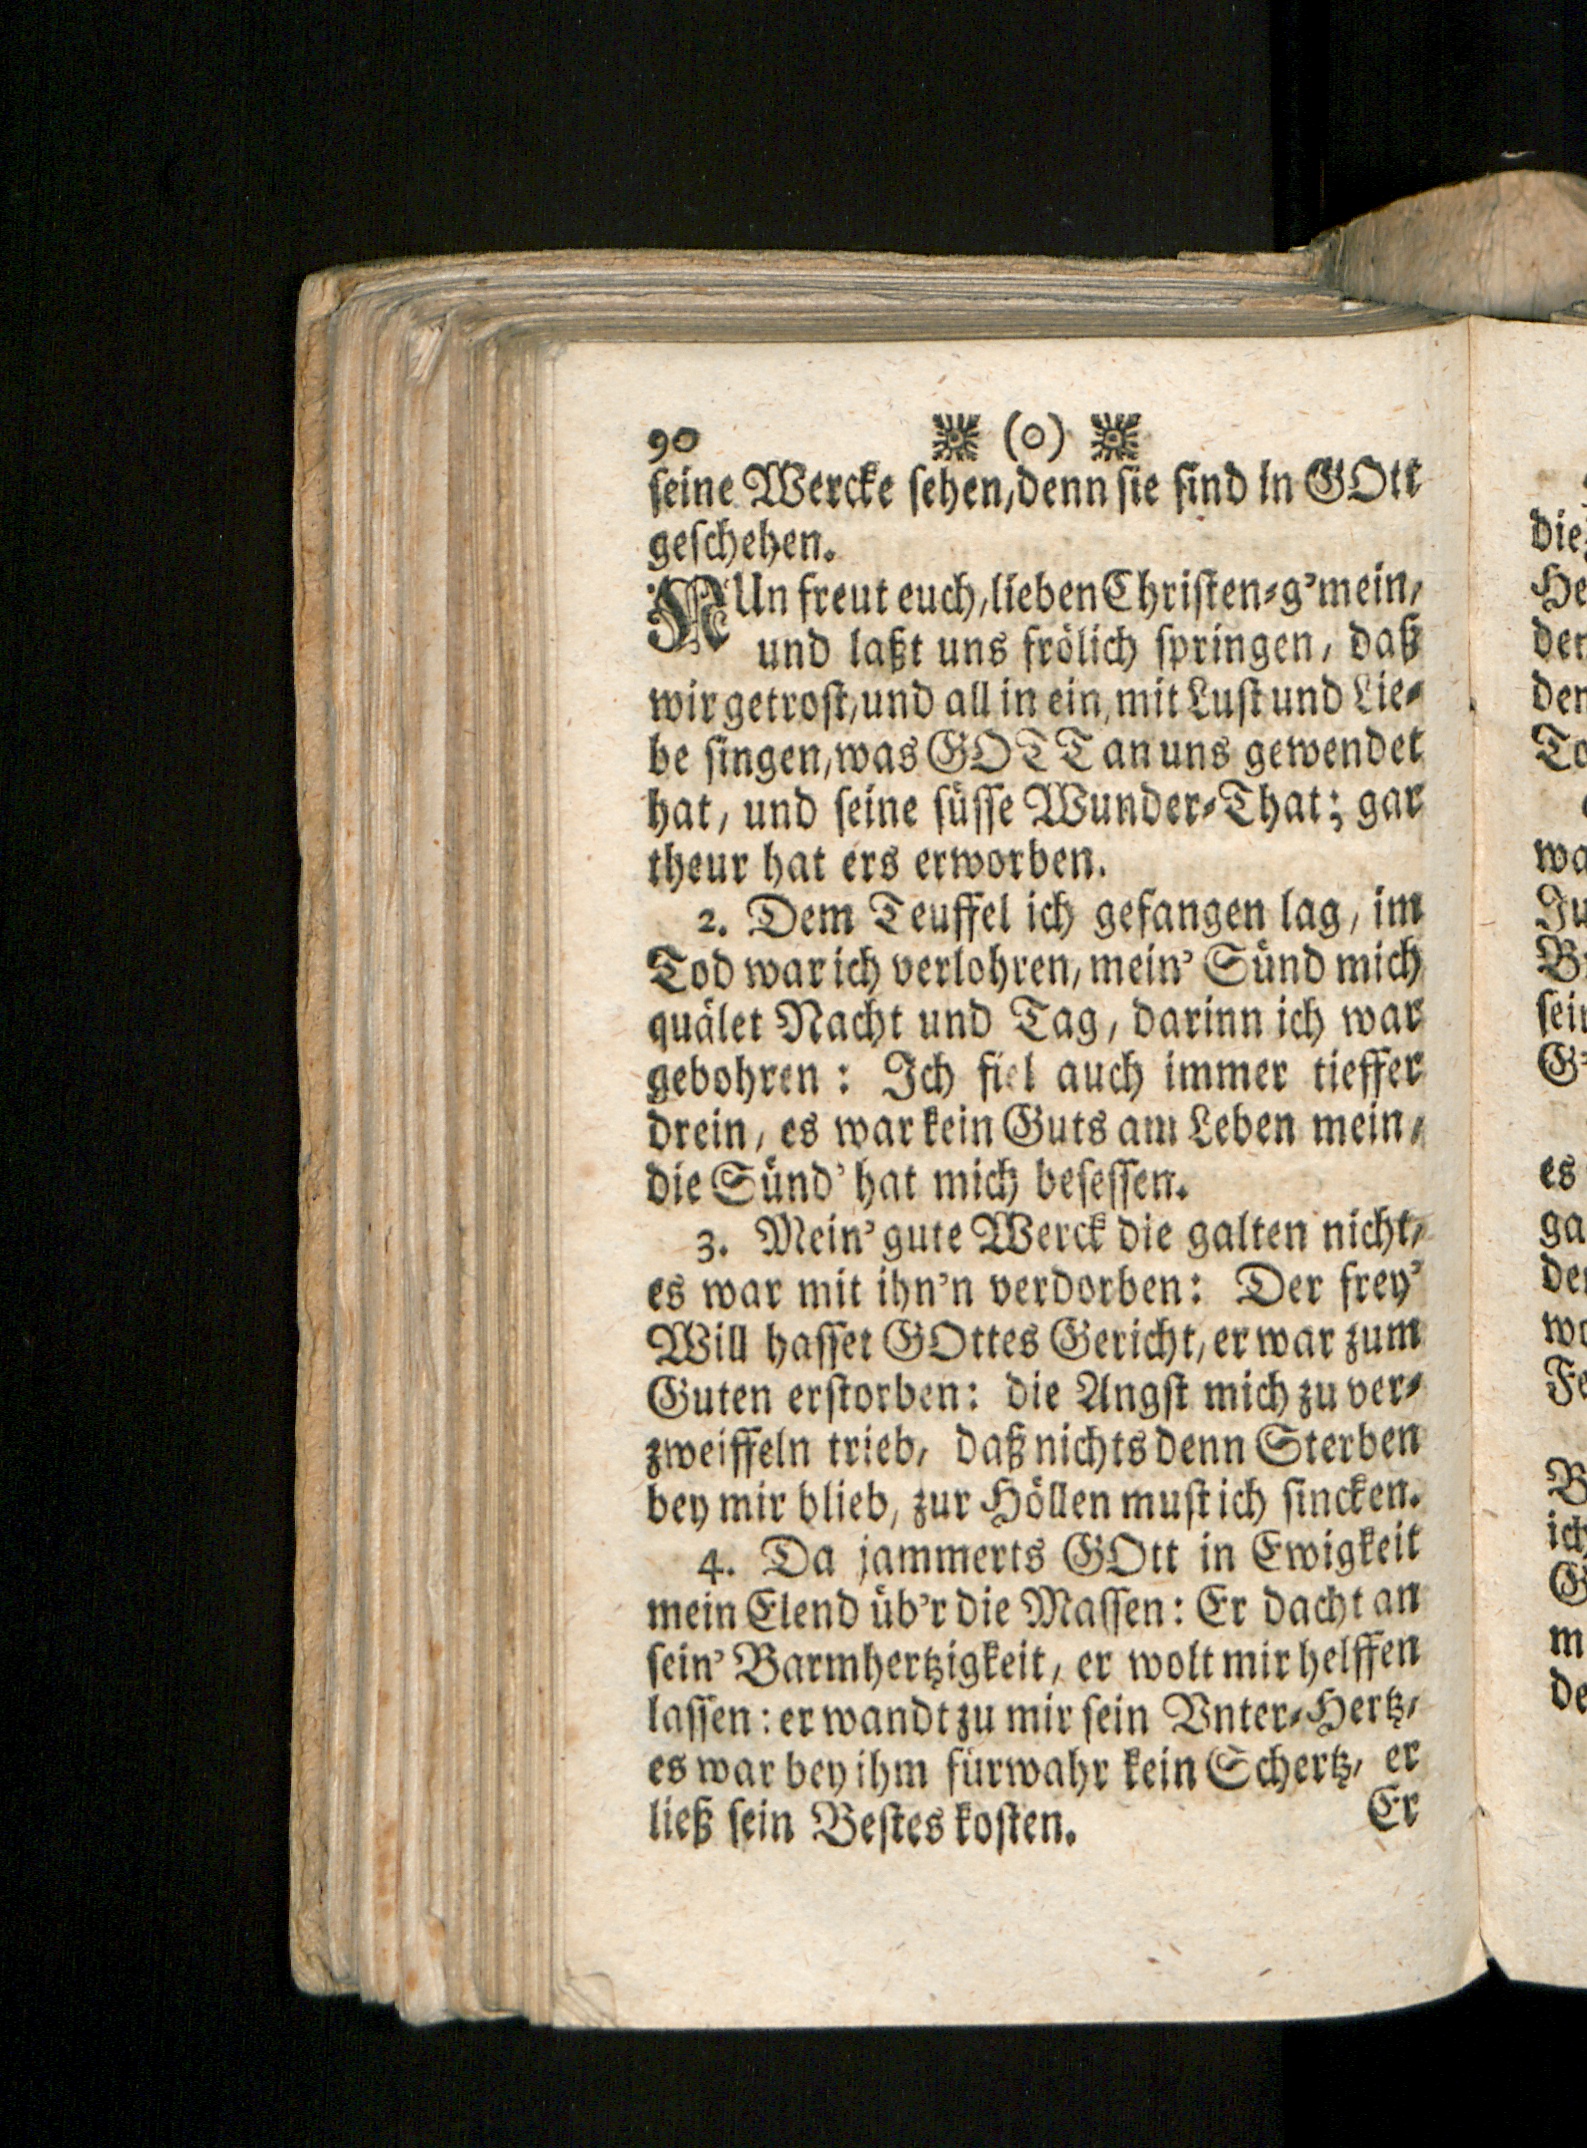 90 (o)
seine Wercke sehen, denn sie sind in GOtt
geschehen.
NUn freut euch, lieben Christen-g'mein,
und laßt uns frölich springen, daß
wir getrost, und all in ein, mit Lust und Lie-
be singen, was GOTT an uns gewendet
hat, und seine süsse Wunder-That; gar
theur hat ers erworben.
2. Dem Teuffel ich gefangen lag, im
Tod war ich verlohren, mein' Sünd mich
quälet Nacht und Tag, darinn ich war
gebohren: Ich fiel auch immer tieffer
drein, es war kein Guts am Leben mein,
die Sünd' hat mich besessen.
3. Mein' gute Werck die galten nicht,
es war mit ihn'n verdorben: Der frey'
Will hasset GOttes Gericht, er war zum
Guten erstorben: die Angst mich zu ver-
zweiffeln trieb, daß nichts denn Sterben
bey mir blieb, zur Höllen must ich sincken.
4. Da jammerts GOtt in Ewigkeit
mein Elend üb'r die Massen: Er dacht an
sein' Barmhertzigkeit, er wolt mir helffen
lassen: er wandt zu mir sein Vnter-Hertz,
es war bey ihm fürwahr kein Schertz, er
ließ sein Bestes kosten.
Er
die-
He
der
den
To
wa
Ju
sein
es
ga
der
wo
Fe
B
ich
G
m
de